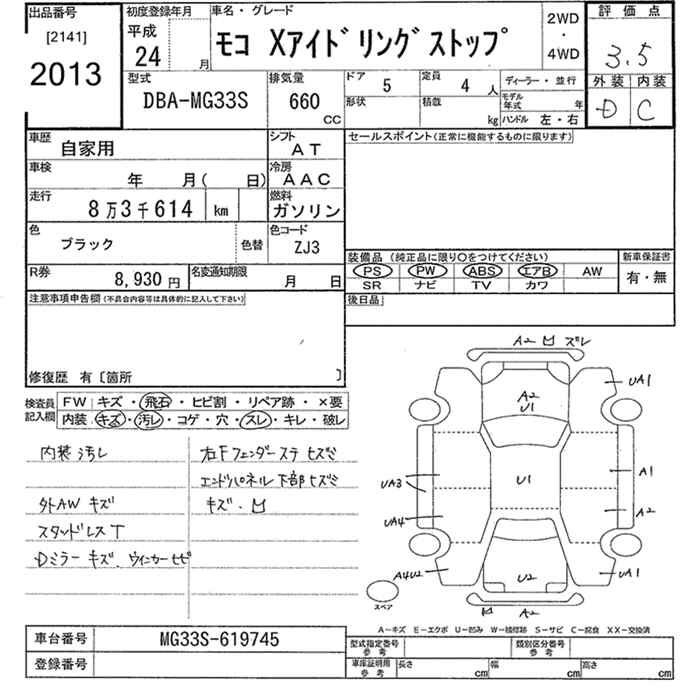 出品番号
[2141]
2013
初度登録年月
平成
24 月
車名・グレード
モコ Xアイドリングストップ
2WD
・
4WD
評価点
3.5
外装 内装
D C
型式
DBA-MG33S
排気量
660
CC
ドア 5
定員 4 人
形状
積載 kg
ディーラー・並行
モデル年式 年
ハンドル 左・右
車歴 自家用
シフト AT
セールスポイント(正常に機能するものに限ります)
車検 年 月( 日)
冷房 AAC
走行 8万3千614 km
燃料 ガソリン
色 ブラック 色替
色コード ZJ3
装備品 (純正品に限り○をつけてください)
PS PW ABS エアB AW
SR ナビ TV カワ
新車保証書
有・無
R券 8,930円
名変通知期限 月 日
後日品
注意事項申告欄(不具合内容等は具体的に記入して下さい)
修復歴 有〔箇所 〕
検査員記入欄
FW キズ・飛石・ヒビ割・リペア跡・×要
内装 キズ・汚レ・コゲ・穴・スレ・キレ・破レ
内装汚レ
外AW キズ
スタッドレスT
Dミラー キズ. ウィンカーヒビ
右Fフェンダーステ ヒズミ
エンドパネル下部ヒズミ
キズ.凹
A2 凹 ズレ
UA1
A2
U1
UA3
U1
A1
UA4
A2
A4U2
U2
UA1
スペア
凹 A2
A-キズ E-エクボ U-凹み W-補修跡 S-サビ C-腐食 XX-交換済
車台番号 MG33S-619745
登録番号
型式指定番号 参考
類別区分番号 参考
車庫証明用 参考
長さ cm
幅 cm
高さ cm